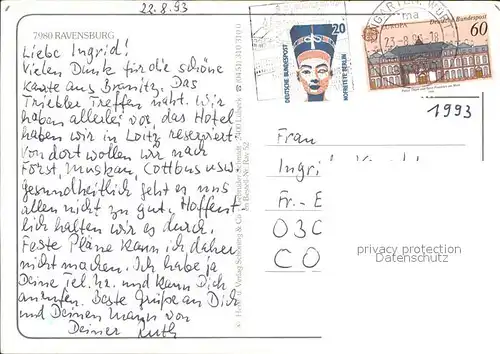 22.8.93
7980 RAVENSBURG
Liebe Ingrid!
Vielen Dank für die schöne
Karte aus Branitz. Das
Triebler Treffen naht. Wir
haben allerlei vor, das Hotel
haben wir in Loitz reserviert.
Von dort wollen wir nach
Forst, Muskau, Cottbus usw.
gesundheitlich geht es uns
allen nicht zu gut. Hoffent
lich halten wir es durch.
Feste Pläne kann ich daher
nicht machen. Ich habe ja
Deine Tel. Nr. und kann Dich
anrufen. Beste Grüße an Dich
und Deinen Mann von
Deiner Ruth
Verlag Schöning & Co
Lübeck
DEUTSCHE BUNDESPOST
20
NOFRETETE BERLIN
EUROPA
Deutsche Bundespost
60
1993
Frau
Ingrid
Fr.-E
03C
CO
privacy protection
Datenschutz